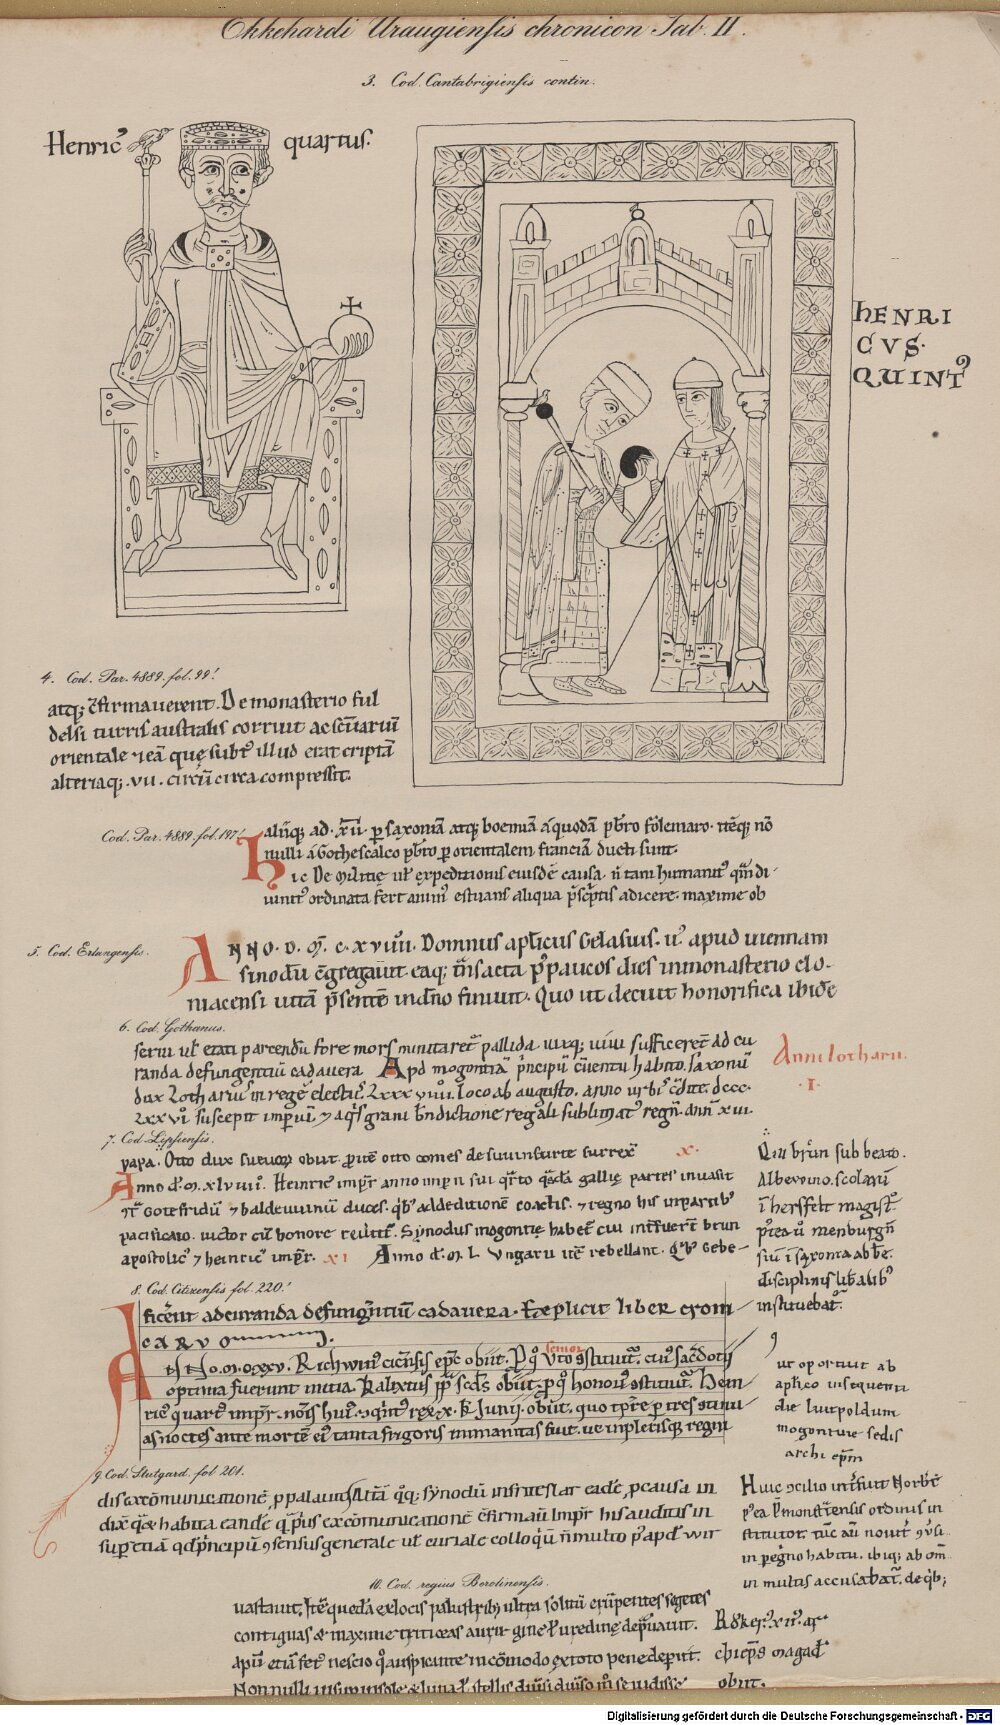 Ekkehardi Uraugiensis chronicon Tab. II.
3. Cod. Cantabrigiensis contin.
Henric⁹ quartus.
HENRI
CVS·
QUINT⁹
4. Cod. Par. 4889. fol. 99!
atq; ꝯfirmaverent. De monasterio ful
densi turris australis corruit ac scūariū
orientale ⁊ eā quę subt᷒ illud erat criptā
alteriaq; .vii. circū circa compressit.
Cod. Par. 4889. fol. 197!
aliiq; ad .xii. p saxoniā atq; boemiā a quodā pbro folcmaro. itēq; nō
nulli a Gothescalco pbro p orientalem franciā ducti sunt.
Hic De militię ul expeditionis eiusdē causa. n tam humanit᷒ qm di-
vinit᷒ ordinata fert anim᷒ estuans aliqua psciptis adicere. maxime ob
5. Cod. Erlangensis.
ANNO. D. M. C. XVIIII. Domnus aplicus Gelasius. u᷒ apud viennam
sinodū cgregavit eaq; tnsacta p᷒ paucos dies in monasterio clo-
niacensi vitā psentē in dno finiuit. Quo ut decuit honorifica ibidē
6. Cod. Gothanus.
sexui ul etati parcendū fore mors minitaret᷒ pallida. vixq; vivi sufficerēt ad cu
randa defungentiū cadavera Apd mogontiā pncipū cuentu habito, saxonū
dux Lothariu᷒ in regē electi᷒. Lxxx viiii. loco ab augusto. anno urbi᷒ cdite. dccc.
Lxx vi. suscepit imperiū, ⁊ aq̇sgrani bndictione regali sublimat᷒ regn. ann xiii.
Anni Lotharii.
.I.
7. Cod. Lipsiensis.
papa. Otto dux suevorū obiit. p quē otto comes de suuinfurte surrex᷒ x.
Anno d. M. xlviiii. Heinric᷒ impr anno imperii sui qrto qsdā gallię partes invasit
⁊ Gotefridū ⁊ baldewinū duces. qb᷒ ad deditionē coactis. ⁊ regno his in partib᷒
pacificato. victor cū honore revertit. Synodus mogontię habet᷒ cui intfuert brun
apostolic᷒ ⁊ heinric᷒ impr. XI Anno d. M. L. Ungarii itē rebellant. Qb᷒ Gebe-
Qui brun sub beato.
Alberuino. scolarū
i hersfelt magist᷒.
8. Cod. Citizensis fol. 220!
ficerent ad curanda defungentiū cadavera. Explicit liber croni
carum.
ANNo. M. CXXV. Richwin᷒ cicensis epc obiit. P q̊ Vto ꝯstituit᷒. cui᷒ sacdotii
senior
optima fuerunt initia. Kalixtus pp scds obiit. p q̊ honori᷒ ꝯstituit᷒. Hein
ric᷒ quart᷒ impr. nois hui᷒. ⁊ qint᷒ rex. x. K Junii. obiit. quo tpre p tres ꝯtinu
as noctes ante mortē ei᷒ tanta frigoris inmanitas fuit. ut inpletisq; regni
disciplinis libalib᷒
instituebat᷒.
ut oportuit ab
aplico insequenti
die luitpoldum
mogontine sedis
archi epm
9. Cod. Stutgard. fol 201.
dis excōmunicationē, ppalavit Altā q̊q; synodū in friteslar eadē, p causa in
dixit qd ⁊ habita eandē qm prius excōmunicationē cfirmavit Impr his auditis in
sup etiā qd pncipū ꝯsensus generale ul curiale colloqūm n multo p᷒ apd wir
Huic ꝯcilio intfuit Norbt᷒
p᷒ea pmonstrensis ordinis in
stitutor. tūc au noviт᷒ ꝯvsi.
in p egno habitu. ibiq; ab om
in multis accusabat᷒. de qb;
10. Cod. regius Berolinensis.
vastavit. Itē quedā ex locis palustrib; ultra solitū erūpentes segetes
contiguas & maxime triticeas aurugine ul uredine depravavit.
apu etiā fet᷒ nescio q̊ auspicante incōmodo ex toto pene deperiit.
Non nulli insup in sole & luna ul stellis divis diviso m se vidisse
Rodker᷒ xii᷒. ar
chieps magad
obiit.
Digitalisierung gefördert durch die Deutsche Forschungsgemeinschaft - DFG